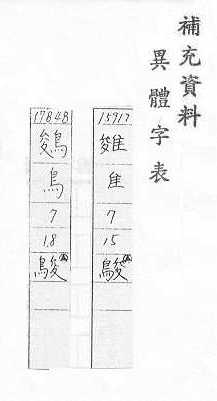 補充資料
異體字表
15917
隹
7
15
17848
鵔
鳥
7
18